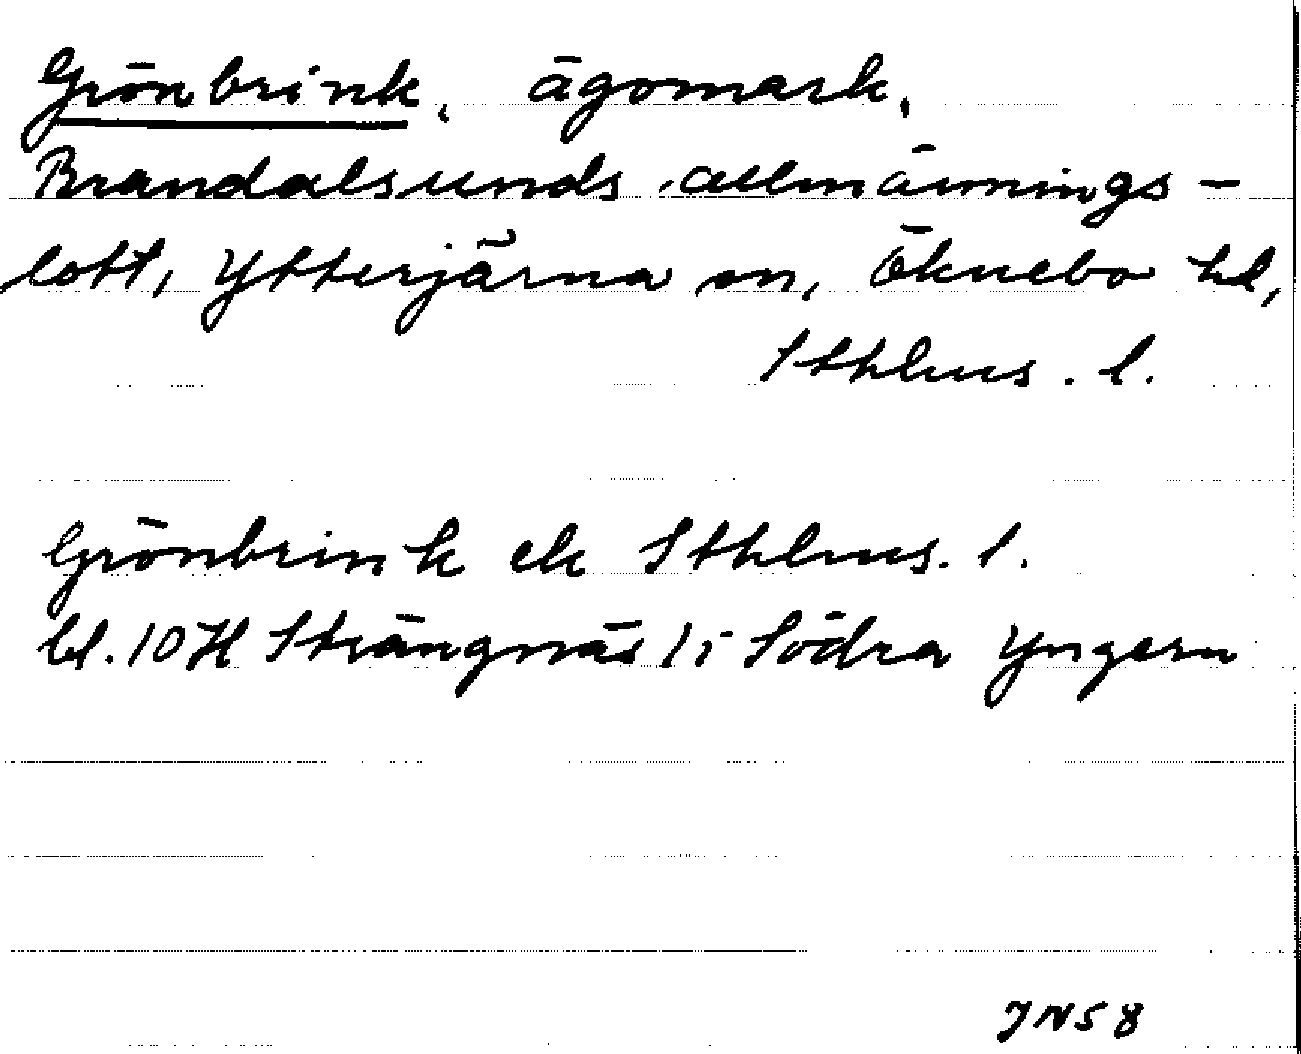 Grönbrink, ägomark,
Brandalsunds allmännings-
lott, Ytterjärna sn, Öknebo hd,
Sthlms. l.
Grönbrink ek Sthlms. l.
bl. 10H Strängnäs li Södra Yngern
JN58